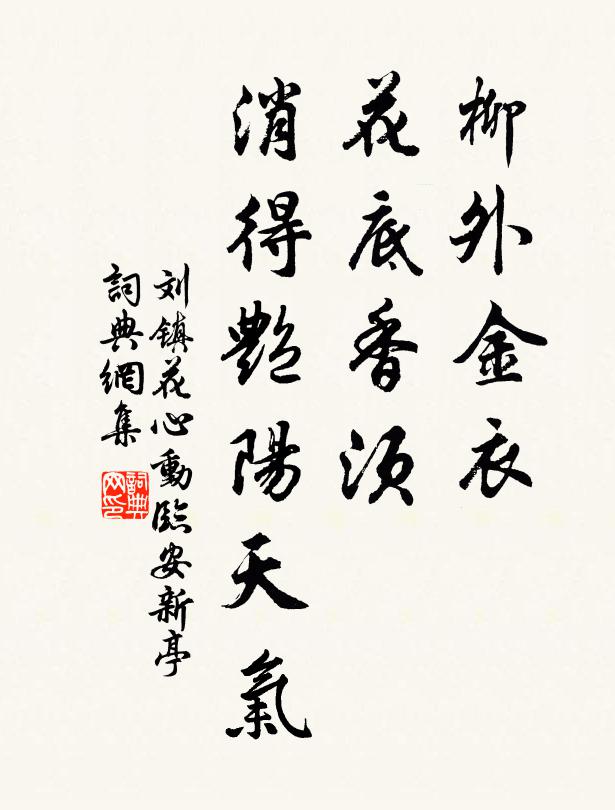 柳外金衣
花底香須
消得艷陽天氣
刘镇花心動臨安新亭
詞典網集
詞典网印